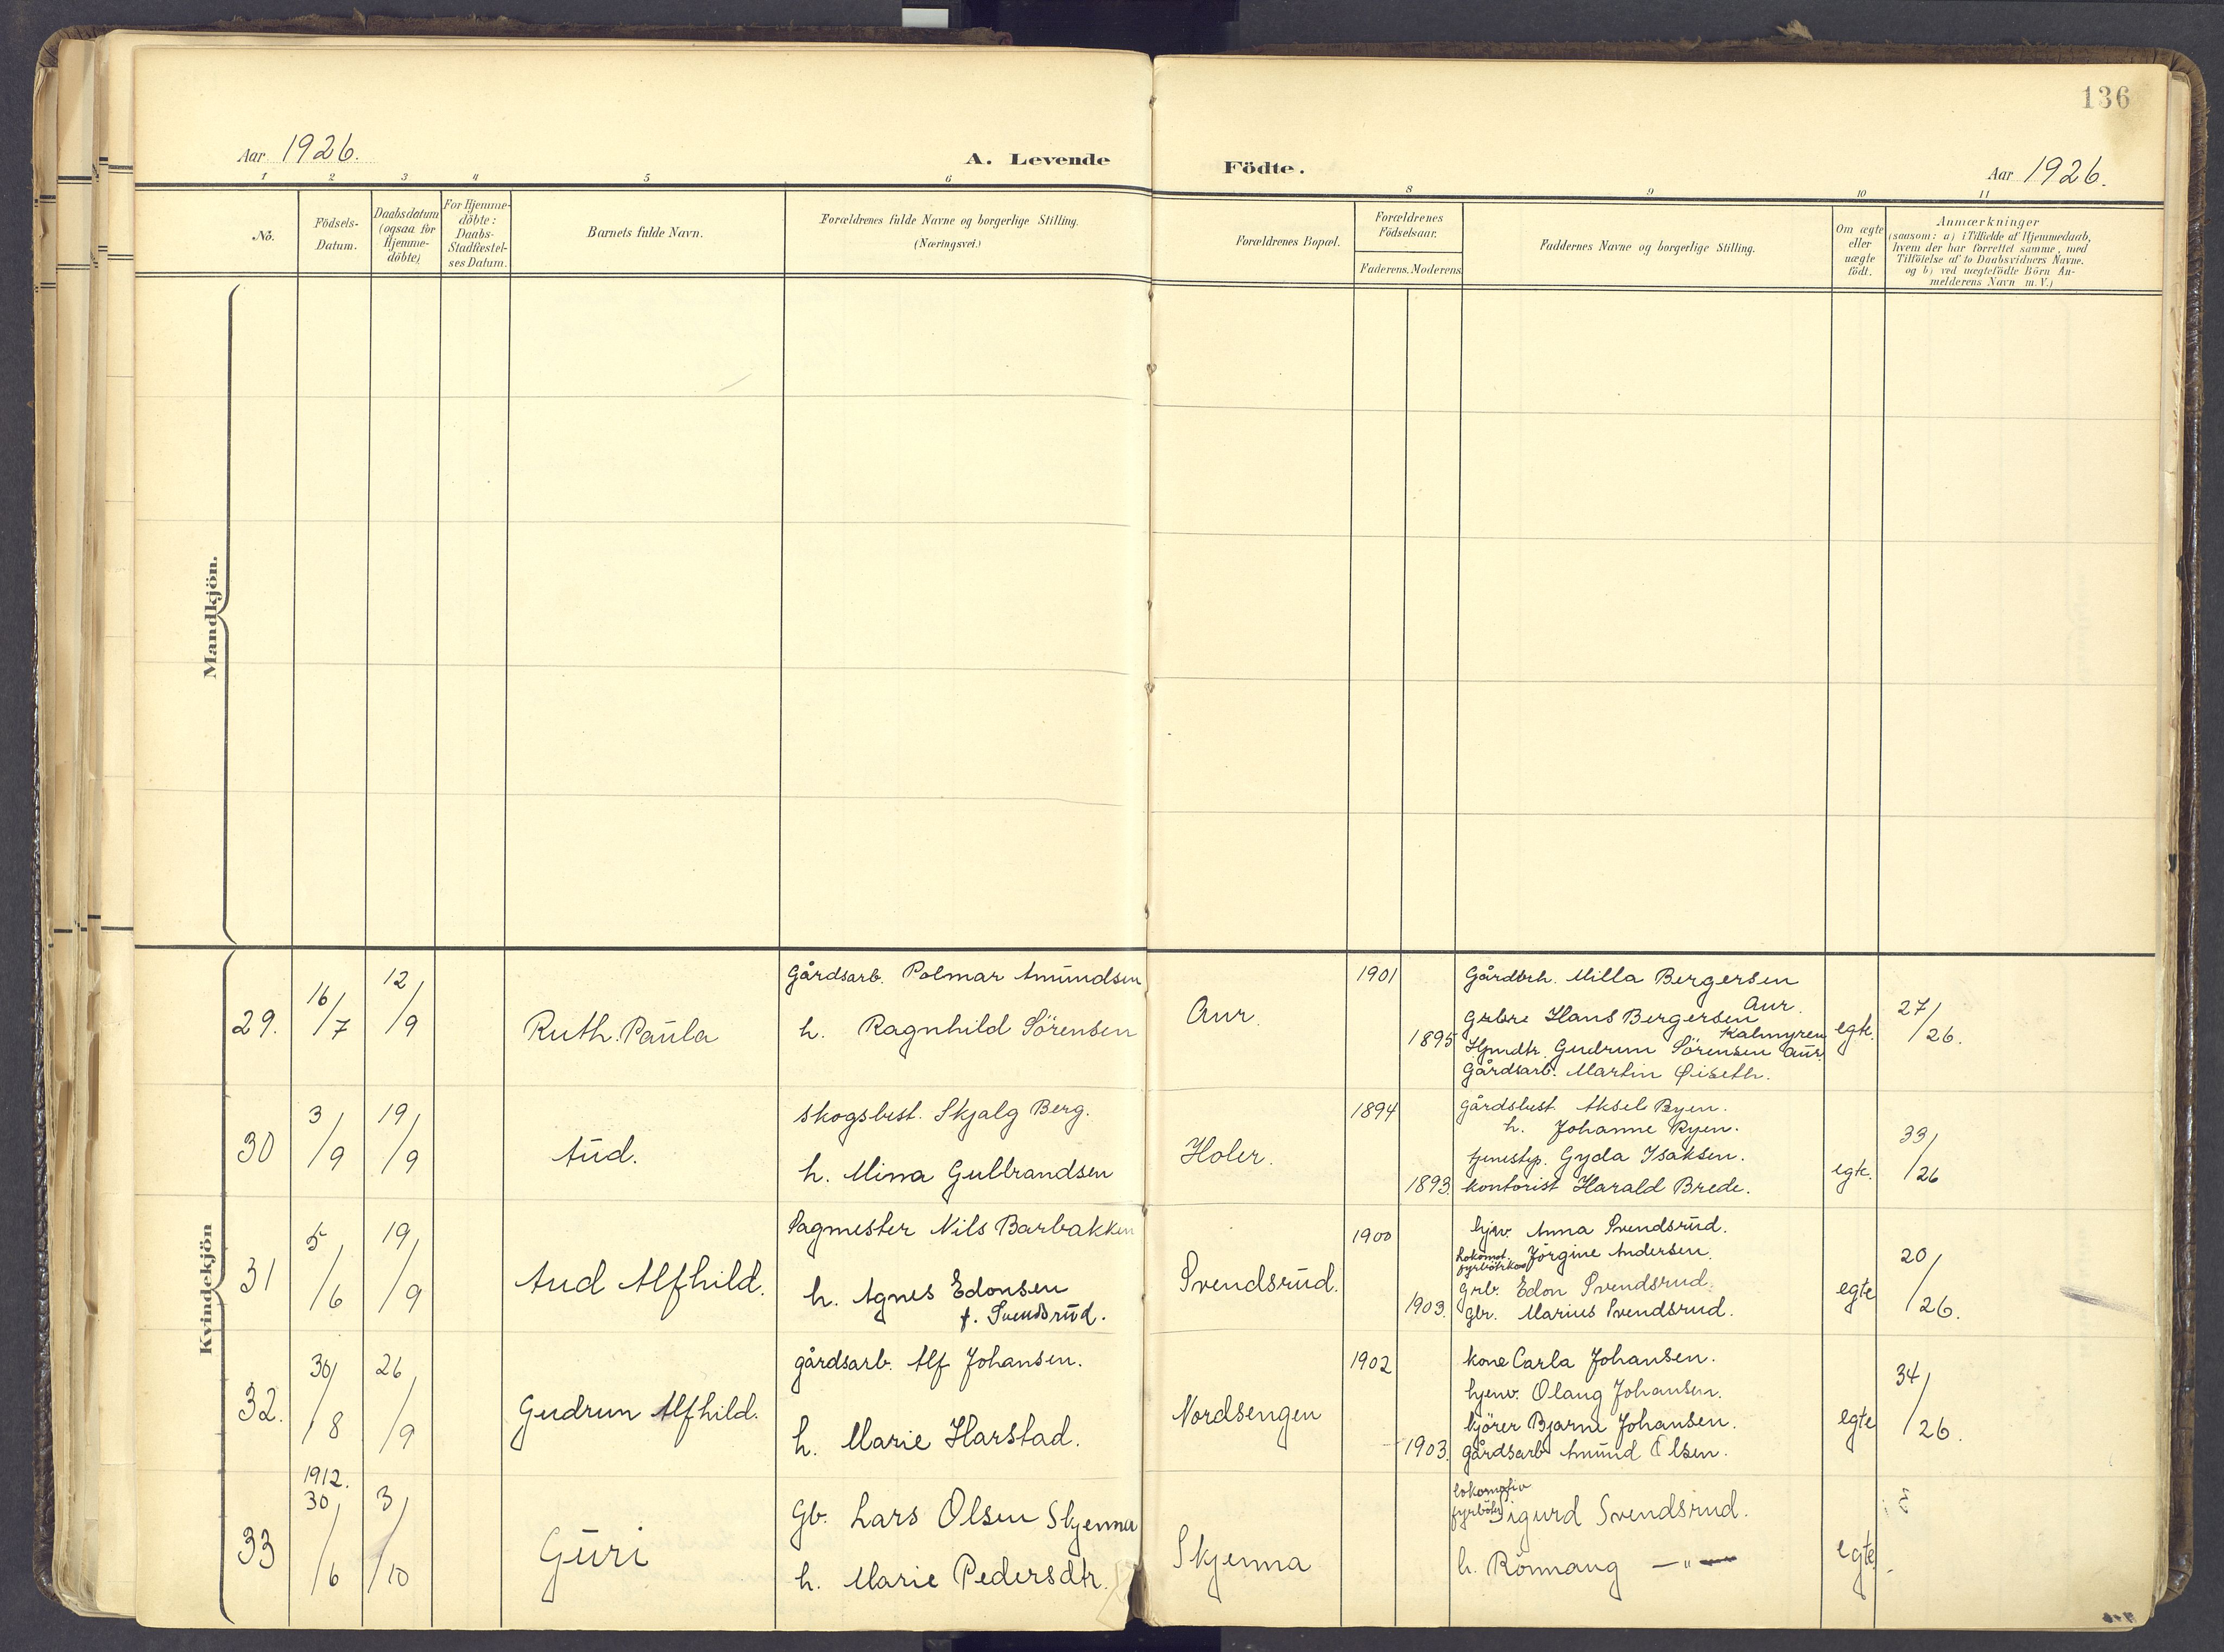 136
Aar 1926.
A. Levende
Födte.
Aar 1926.
1 2 3 4 5 6 8 9 10 11
No.
Födsels-
Datum.
Daabsdatum
(ogsaa for
Hjemme-
döbte)
For Hjemme-
döbte:
Daabs-
Stadfæstel-
ses Datum.
Barnets fulde Navn.
Forældrenes fulde Navne og borgerlige Stilling.
(Næringsvei.)
Forældrenes Bopæl.
Forældrenes
Födselsaar.
Faderens. Moderens.
Faddernes Navne og borgerlige Stilling.
Om ægte
eller
uægte
födt.
Anmærkninger
(saasom: a) i Tilfælde af Hjemmedaab,
hvem der har forrettet samme, med
Tilföielse af to Daabsvidners Navne.
og b) ved uægtefödte Börn An-
melderens Navn m. V.)
Mandkjön.
Kvindekjön
29.
16/7
12/9
Ruth Paula
Gårdsarb. Polmar Amundsen
h. Ragnhild Sörensen
Aur.
1901
1895
Gårdbrh. Milla Bergersen
Aur.
Grbre Hans Bergersen
Kalmyren
Hjmdtr. Gudrun Sörensen Aur.
Gårdsarb. Martin Øiseth.
egte.
27/26.
30
3/9
19/9
Aud.
skogsbest. Skjalg Berg.
h. Mina Gulbrandsen
Holer.
1894
1893.
Gårdsbest. Aksel Ryen.
h. Johanne Ryen.
tjenestep. Gyda Isaksen.
kontorist Harald Brede.
egte.
33/26
31
5/6
19/9
Aud Alfhild.
Sagmester Nils Barbakken
h. Agnes Edonsen
f. Svendsrud.
Svendsrud.
1900
1903.
hjrv. Anna Svendsrud.
Lokomot.
fyrbötrkone Jörgine Andersen.
Grb. Edon Svendsrud.
Gbr. Marius Svendsrud.
egte
20/26.
32.
30/8
26/9
Gudrun Alfhild.
gårdsarb. Alf Johansen.
h. Marie Harstad.
Nordsengen
1902
1903.
kone Carla Johansen.
hjenv. Olaug Johansen.
kjörer Bjarne Johansen.
gårdsarb. Amund Olsen.
egte
34/26.
33
1912.
30/6
3/10
Guri
Gb. Lars Olsen Skjenna
h. Marie Pedersdtr.
Skjenna
lokomotiv
fyrböter Sigurd Svendsrud.
h. Rönnaug — " —
egte